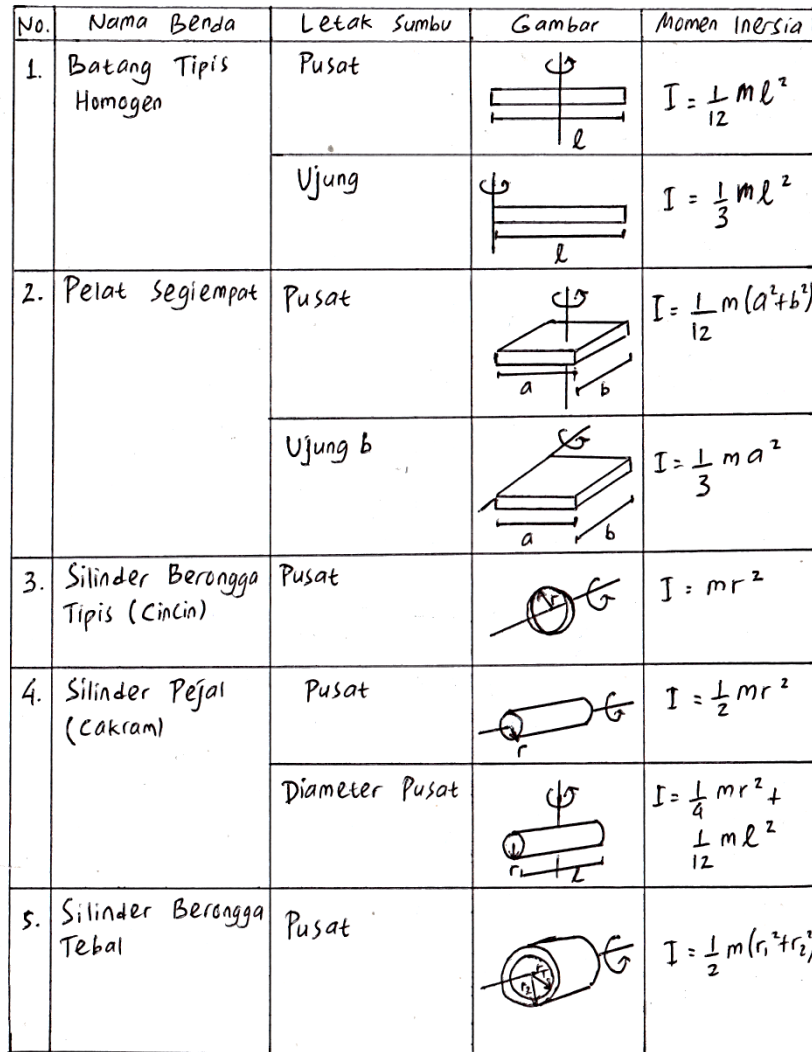 No. Nama Benda Letak Sumbu Gambar Momen Inersia
1. Batang Tipis Homogen
Pusat
l
I = 1/12 ml²
Ujung
l
I = 1/3 ml²
2. Pelat Segiempat
Pusat
a b
I = 1/12 m(a²+b²)
Ujung b
a b
I = 1/3 ma²
3. Silinder Berongga Tipis (Cincin)
Pusat
r
I = mr²
4. Silinder Pejal (Cakram)
Pusat
r
I = 1/2 mr²
Diameter Pusat
r L
I = 1/4 mr² +
1/12 ml²
5. Silinder Berongga Tebal
Pusat
r₁
r₂
I = 1/2 m(r₁²+r₂²